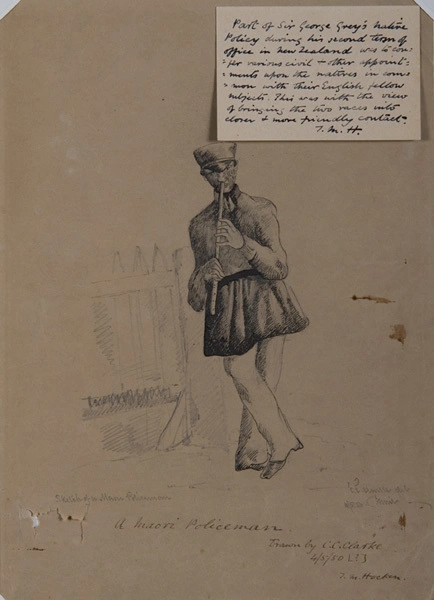 Part of Sir George Grey's Native
Policy during his second term of
office in New Zealand was to con
=fer various civil + other appoint=
=ments upon the natives in com
=mon with their English fellow
subjects. This was with the view
of bringing the two races into
closer & more friendly contact.
T. M. H.
A Maori Policeman.
Drawn by C.C. Clarke
4/5/50
T. M. Hocken.